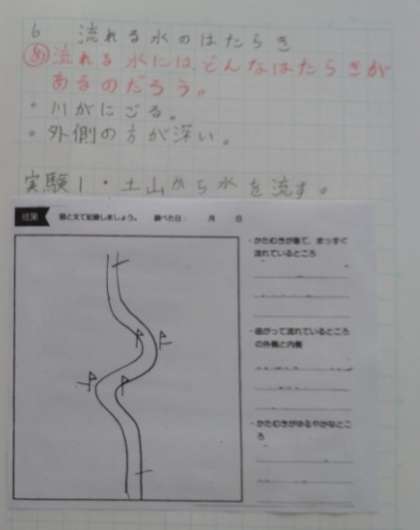 6 流れる水のはたらき
め 流れる水には、どんなはたらきが
あるのだろう。
・川がにごる。
・外側の方が深い。
実験1・土山から水を流す。
結果 図と文で記録しましょう。 調べた日： 月 日
・かたむきが急で、まっすぐ
流れているところ
・曲がって流れているところ
の外側と内側
・かたむきがゆるやかなとこ
ろ